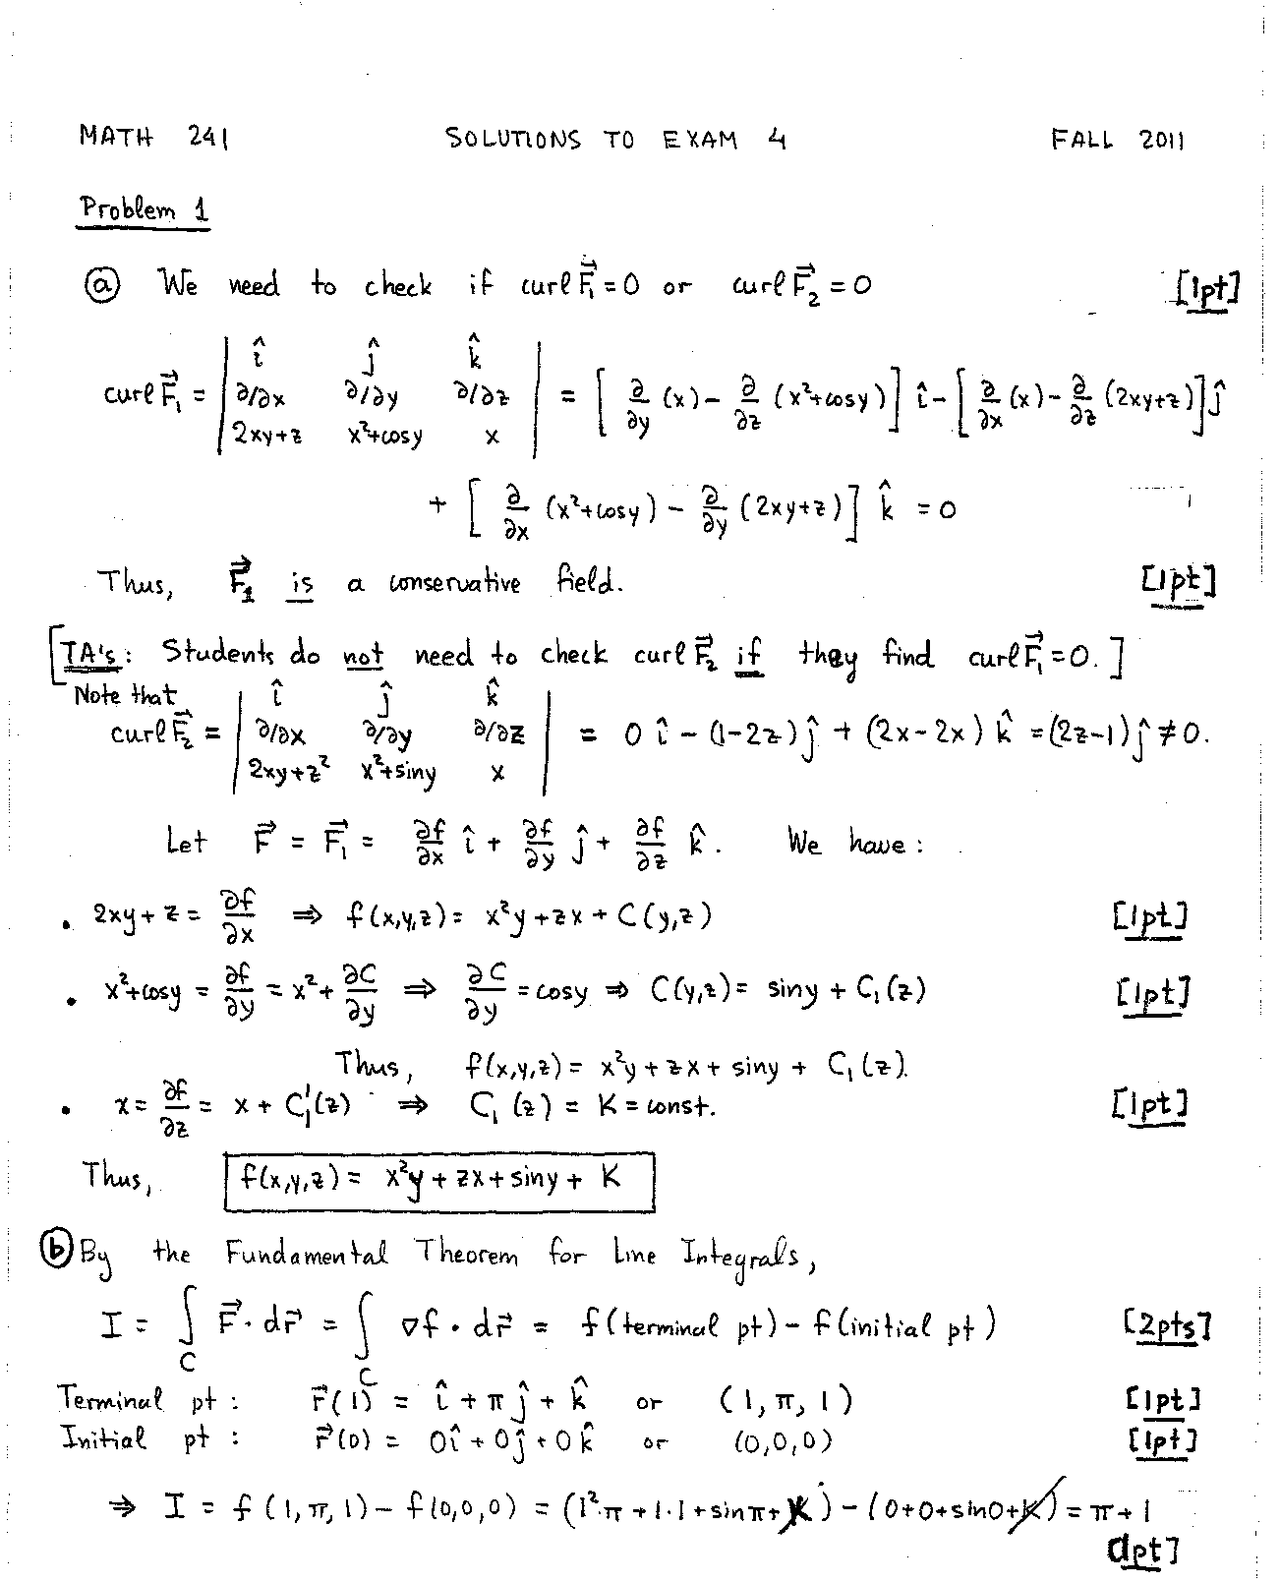 MATH 241 SOLUTIONS TO EXAM 4 FALL 2011
Problem 1
ⓐ We need to check if curl F⃗₁ = 0 or curl F⃗₂ = 0 [1pt]
curl F⃗₁ = | î ĵ k̂ ; ∂/∂x ∂/∂y ∂/∂z ; 2xy+z x²+cosy x | = [∂/∂y (x) − ∂/∂z (x²+cosy)] î − [∂/∂x (x) − ∂/∂z (2xy+z)] ĵ
+ [∂/∂x (x²+cosy) − ∂/∂y (2xy+z)] k̂ = 0
Thus, F⃗₁ is a conservative field. [1pt]
[TA's: Students do not need to check curl F⃗₂ if they find curl F⃗₁ = 0.]
Note that
curl F⃗₂ = | î ĵ k̂ ; ∂/∂x ∂/∂y ∂/∂z ; 2xy+z² x²+siny x | = 0 î − (1−2z) ĵ + (2x−2x) k̂ = (2z−1) ĵ ≠ 0.
Let F⃗ = F⃗₁ = ∂f/∂x î + ∂f/∂y ĵ + ∂f/∂z k̂. We have:
• 2xy + z = ∂f/∂x ⇒ f(x,y,z) = x²y + zx + C(y,z) [1pt]
• x²+cosy = ∂f/∂y = x² + ∂C/∂y ⇒ ∂C/∂y = cosy ⇒ C(y,z) = siny + C₁(z) [1pt]
Thus, f(x,y,z) = x²y + zx + siny + C₁(z).
• x = ∂f/∂z = x + C₁'(z) ⇒ C₁(z) = K = const. [1pt]
Thus, f(x,y,z) = x²y + zx + siny + K
ⓑ By the Fundamental Theorem for Line Integrals,
I = ∫_C F⃗ · dr⃗ = ∫_C ∇f · dr⃗ = f(terminal pt) − f(initial pt) [2pts]
Terminal pt : r⃗(1) = î + π ĵ + k̂ or (1, π, 1) [1pt]
Initial pt : r⃗(0) = 0î + 0ĵ + 0k̂ or (0,0,0) [1pt]
⇒ I = f(1, π, 1) − f(0,0,0) = (1²·π + 1·1 + sinπ + K) − (0+0+sin0+K) = π + 1
[1pt]